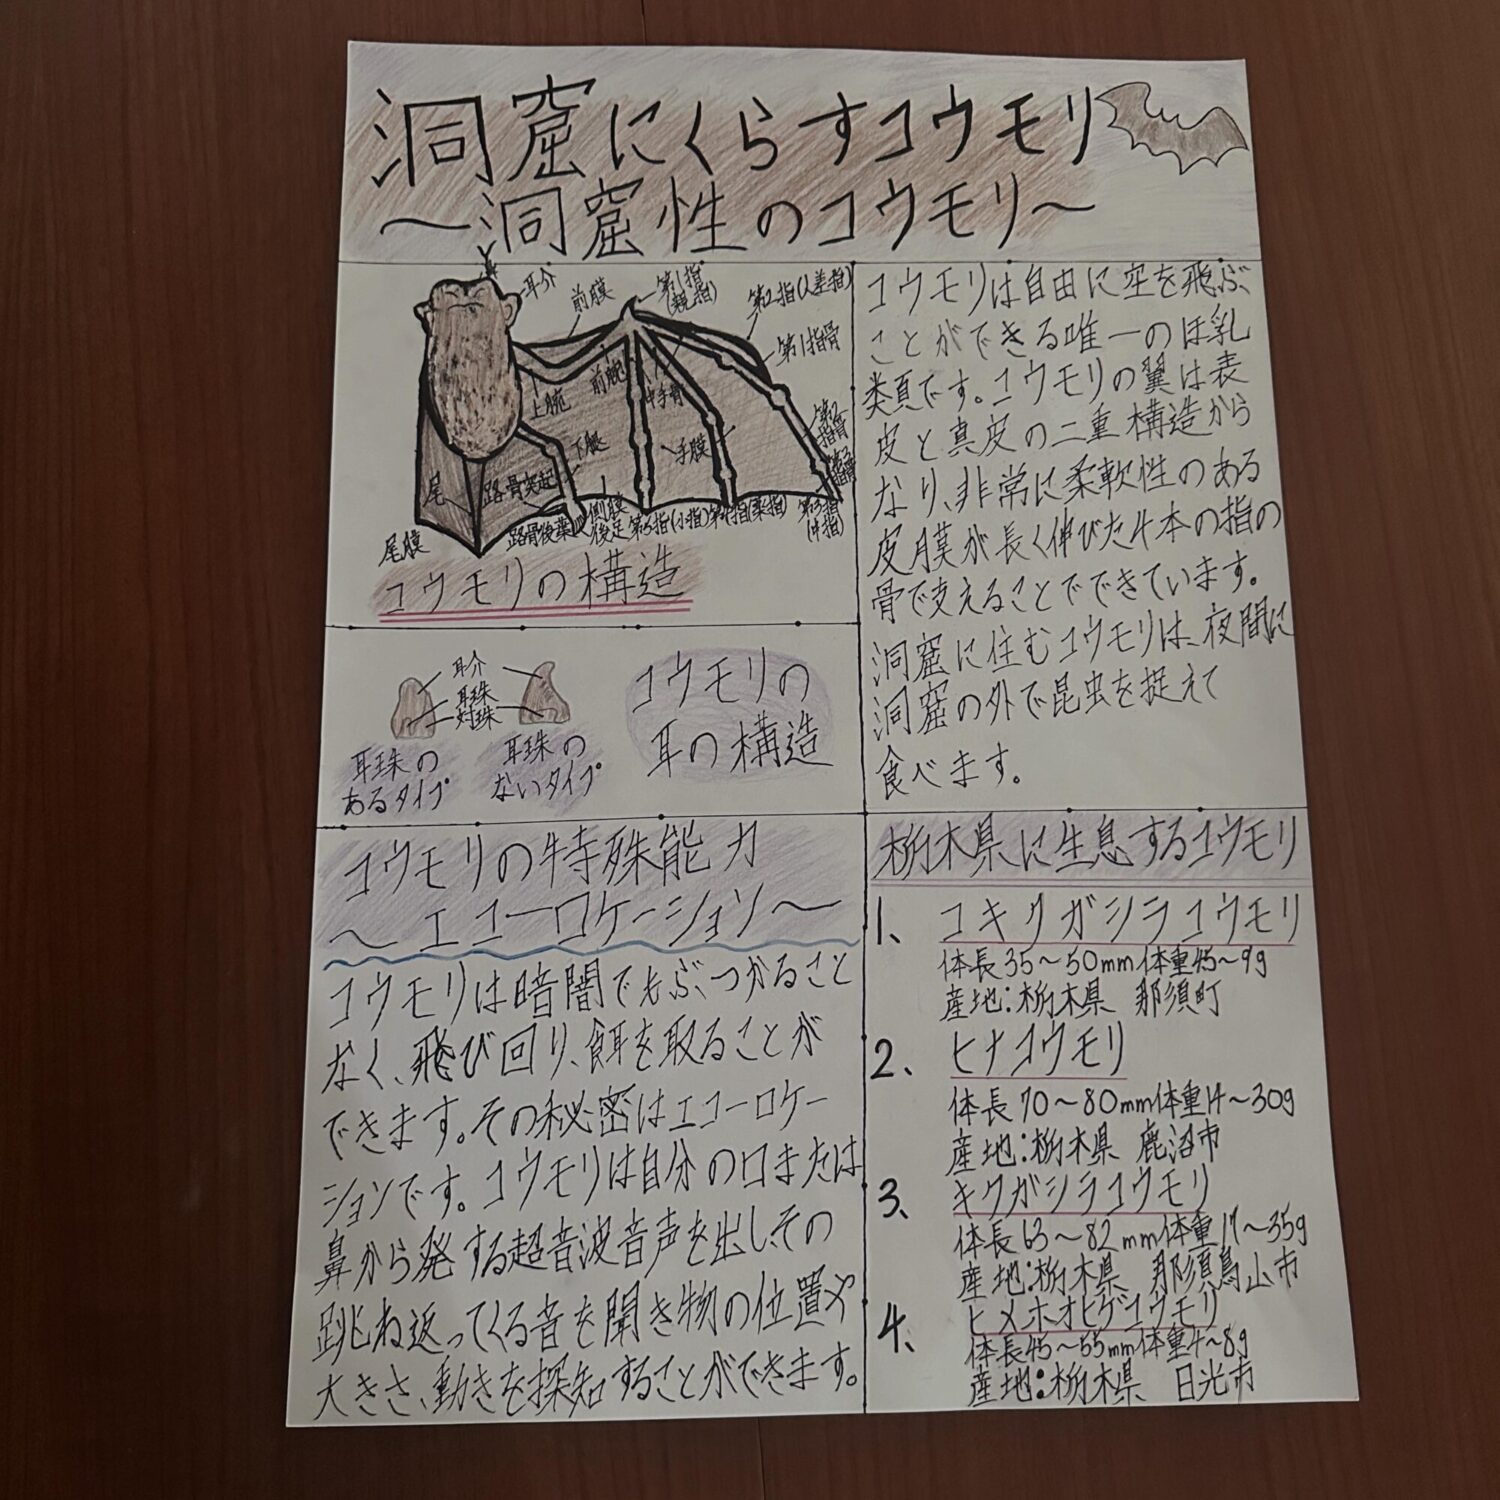 洞窟にくらすコウモリ
～洞窟性のコウモリ～
耳介
前膜
第1指(親指)
第2指(人差指)
第1指骨
上腕
前腕
中手骨
第2指骨
第3指骨
下腿
手膜
尾
尾膜
側膜
後足
第5指(小指)
第4指(薬指)
第3指(中指)
コウモリの構造
耳介
耳珠
対珠
耳珠の
あるタイプ
耳珠の
ないタイプ
コウモリの
耳の構造
コウモリは自由に空を飛ぶ
ことができる唯一のほ乳
類です。コウモリの翼は表
皮と真皮の二重構造から
なり、非常に柔軟性のある
皮膜が長く伸びた4本の指の
骨で支えることでできています。
洞窟に住むコウモリは、夜間に
洞窟の外で昆虫を捉えて
食べます。
コウモリの特殊能力
～エコーロケーション～
コウモリは暗闇でもぶつかること
なく、飛び回り、餌を取ることが
できます。その秘密はエコーロケー
ションです。コウモリは自分の口または
鼻から発する超音波音声を出し、その
跳ね返ってくる音を聞き物の位置や
大きさ、動きを探知することができます。
栃木県に生息するコウモリ
1、コキクガシラコウモリ
体長35～50mm体重4.5～9g
産地:栃木県 那須町
2、ヒナコウモリ
体長70～80mm体重14～30g
産地:栃木県 鹿沼市
3、キクガシラコウモリ
体長63～82mm体重17～35g
産地:栃木県 那須烏山市
4、ヒメホオヒゲコウモリ
体長45～55mm体重4～8g
産地:栃木県 日光市